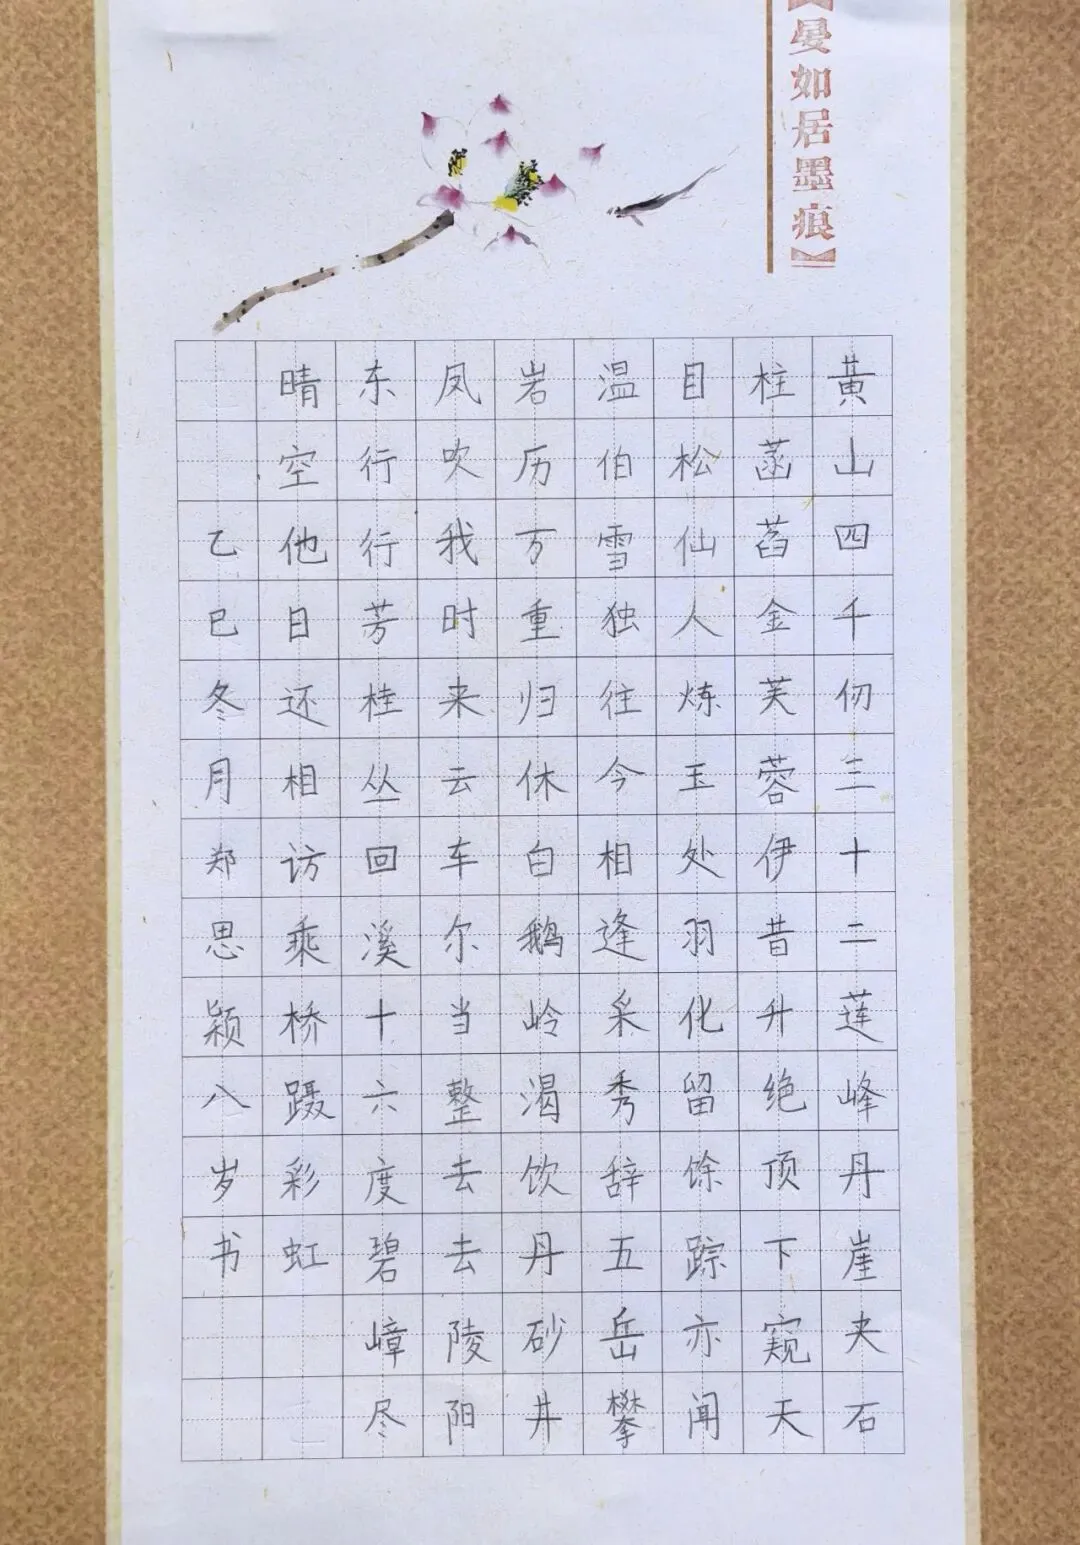 【晏如居墨痕】
黄山四千仞三十二莲峰丹崖夹石
柱菡萏金芙蓉伊昔升绝顶下窥天
目松仙人炼玉处羽化留馀踪亦闻
温伯雪独往今相逢采秀辞五岳攀
岩历万重归休白鹅岭渴饮丹砂井
凤吹我时来云车尔当整去去陵阳
东行行芳桂丛回溪十六度碧嶂尽
晴空他日还相访乘桥蹑彩虹
乙巳冬月郑思颖八岁书